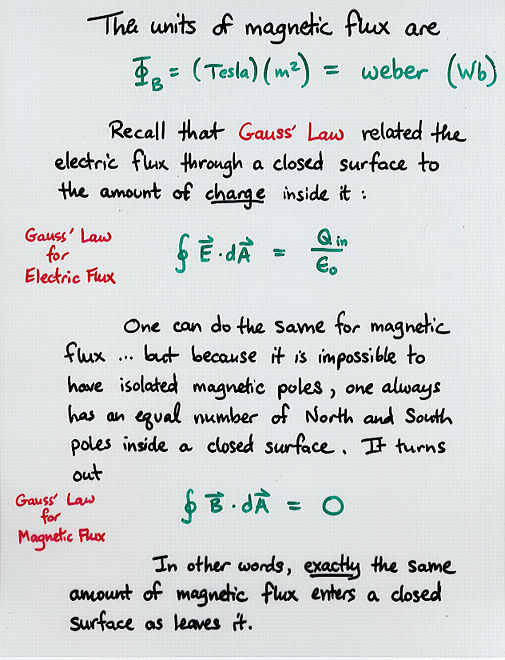 The units of magnetic flux are
Φ_B = (Tesla)(m²) = weber (Wb)
Recall that Gauss' Law related the
electric flux through a closed surface to
the amount of charge inside it :
Gauss' Law
for
Electric Flux
∮ E⃗ · dA⃗ = Q_in / ε₀
One can do the same for magnetic
flux ... but because it is impossible to
have isolated magnetic poles, one always
has an equal number of North and South
poles inside a closed surface. It turns
out
Gauss' Law
for
Magnetic Flux
∮ B⃗ · dA⃗ = 0
In other words, exactly the same
amount of magnetic flux enters a closed
surface as leaves it.